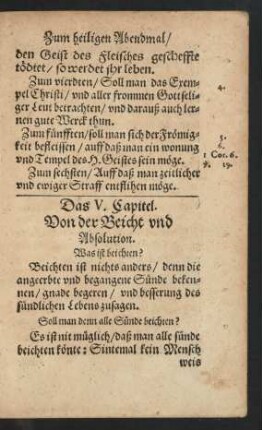 Zum heiligen Abendmal/
den Geist des Fleisches gescheffte
tödtet/ so werdet jhr leben.
Zum vierdten/ Soll man das Exem-
pel Christi/ vnd aller frommen Gottseli-
ger Leut betrachten/ vnd darauß auch ler-
nen gute Werck thun.
4.
Zum fünfften/ soll man sich der Frömig-
keit befleissen/ auff daß man ein wonung
vnd Tempel des H. Geistes sein möge.
5.
6.
1 Cor. 6.
Zum sechsten/ Auff daß man zeitlicher
vnd ewiger Straff entflihen möge.
Das V. Capitel.
Von der Beicht vnd
Absolution.
Was ist beichten?
Beichten ist nichts anders/ denn die
angeerbte vnd begangene Sünde beken-
nen/ gnade begeren/ vnd besserung des
sündlichen Lebens zusagen.
Soll man denn alle Sünde beichten?
Es ist nit müglich/ daß man alle sünde
beichten könte: Sintemal kein Mensch
weis